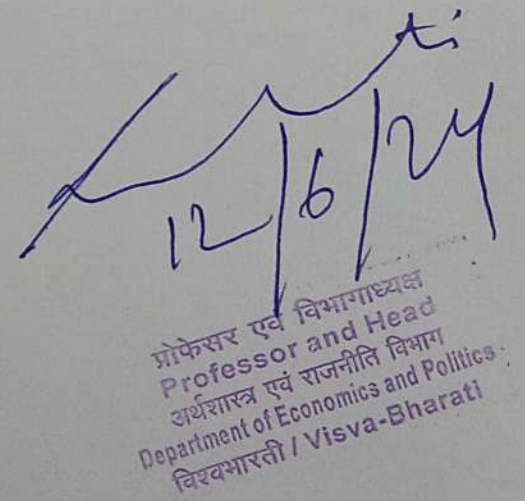 12/6/24
प्रोफेसर एवं विभागाध्यक्ष
Professor and Head
अर्थशास्त्र एवं राजनीति विभाग
Department of Economics and Politics
विश्वभारती / Visva-Bharati